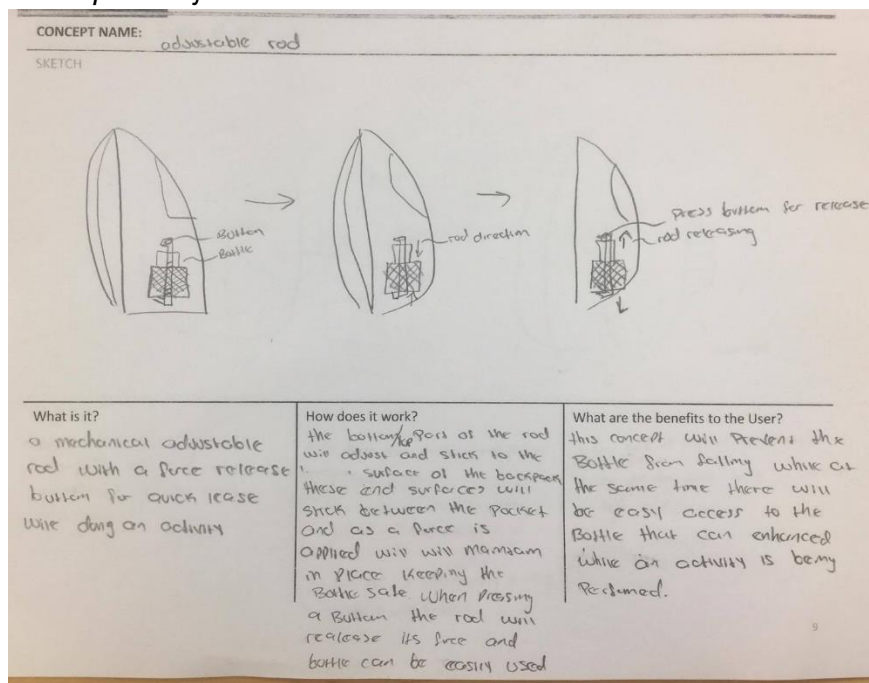 CONCEPT NAME: adjustable rod
SKETCH
Button
Bottle
rod direction
Press button for release
rod releasing
What is it?
a mechanical adjustable
rod with a force release
button for quick lease
wile doing an activity
How does it work?
the bottom/top Pars of the rod
will adjust and stick to the
surface of the backpack
these end surfaces will
stick between the Pocket
and as a force is
applied will will maintain
in Place Keeping the
Bottle safe when Pressing
a Button the rod will
realease its force and
bottle can be easily used
What are the benefits to the User?
this concept will Prevent the
Bottle from falling while at
the same time there will
be easy access to the
Bottle that can enhanced
while an activity is being
Performed.
9